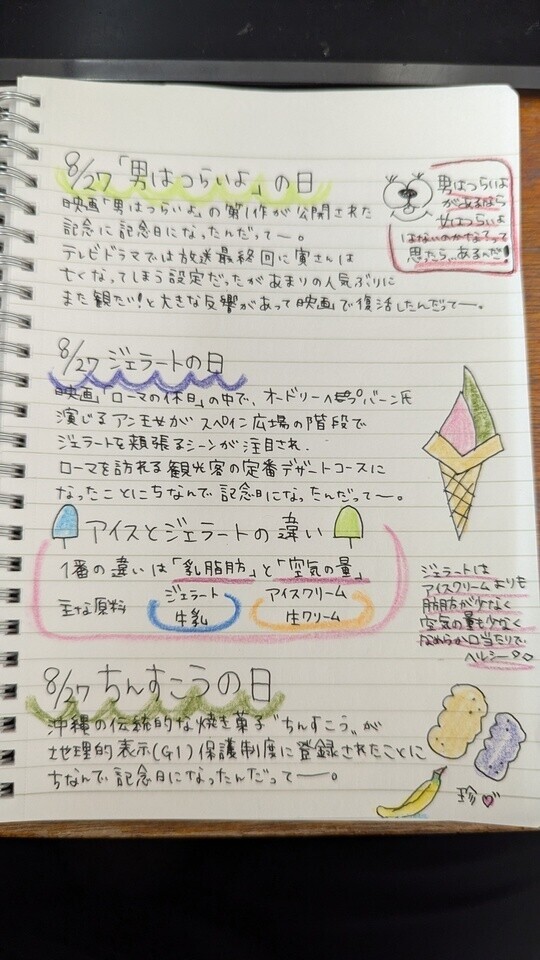 8/27「男はつらいよ」の日
映画「男はつらいよ」の第1作が公開された
記念に記念日になったんだって―。
テレビドラマでは放送最終回に寅さんは
亡くなってしまう設定だったがあまりの人気ぶりに
また観たい!と大きな反響があって映画で復活したんだって―。
男はつらいよ
があるなら
女はつらいよ
はないのかな?って
思たら、あるんだ!
8/27 ジェラートの日
映画「ローマの休日」の中で、オードリーヘプバーン氏
演じるアン王女がスペイン広場の階段で
ジェラートを頬張るシーンが注目され、
ローマを訪れる観光客の定番デザートコースに
なったことにちなんで記念日になったんだって―。
アイスとジェラートの違い
1番の違いは「乳脂肪」と「空気の量」
ジェラート アイスクリーム
主な原料 牛乳 生クリーム
ジェラートは
アイスクリームよりも
脂肪が少なく
空気の量も少なく
なめらか口当たりで、
ヘルシー
8/27 ちんすこうの日
沖縄の伝統的な焼き菓子"ちんすこう"が
地理的表示(GI)保護制度に登録されたことに
ちなんで記念日になったんだって―。
珍♡